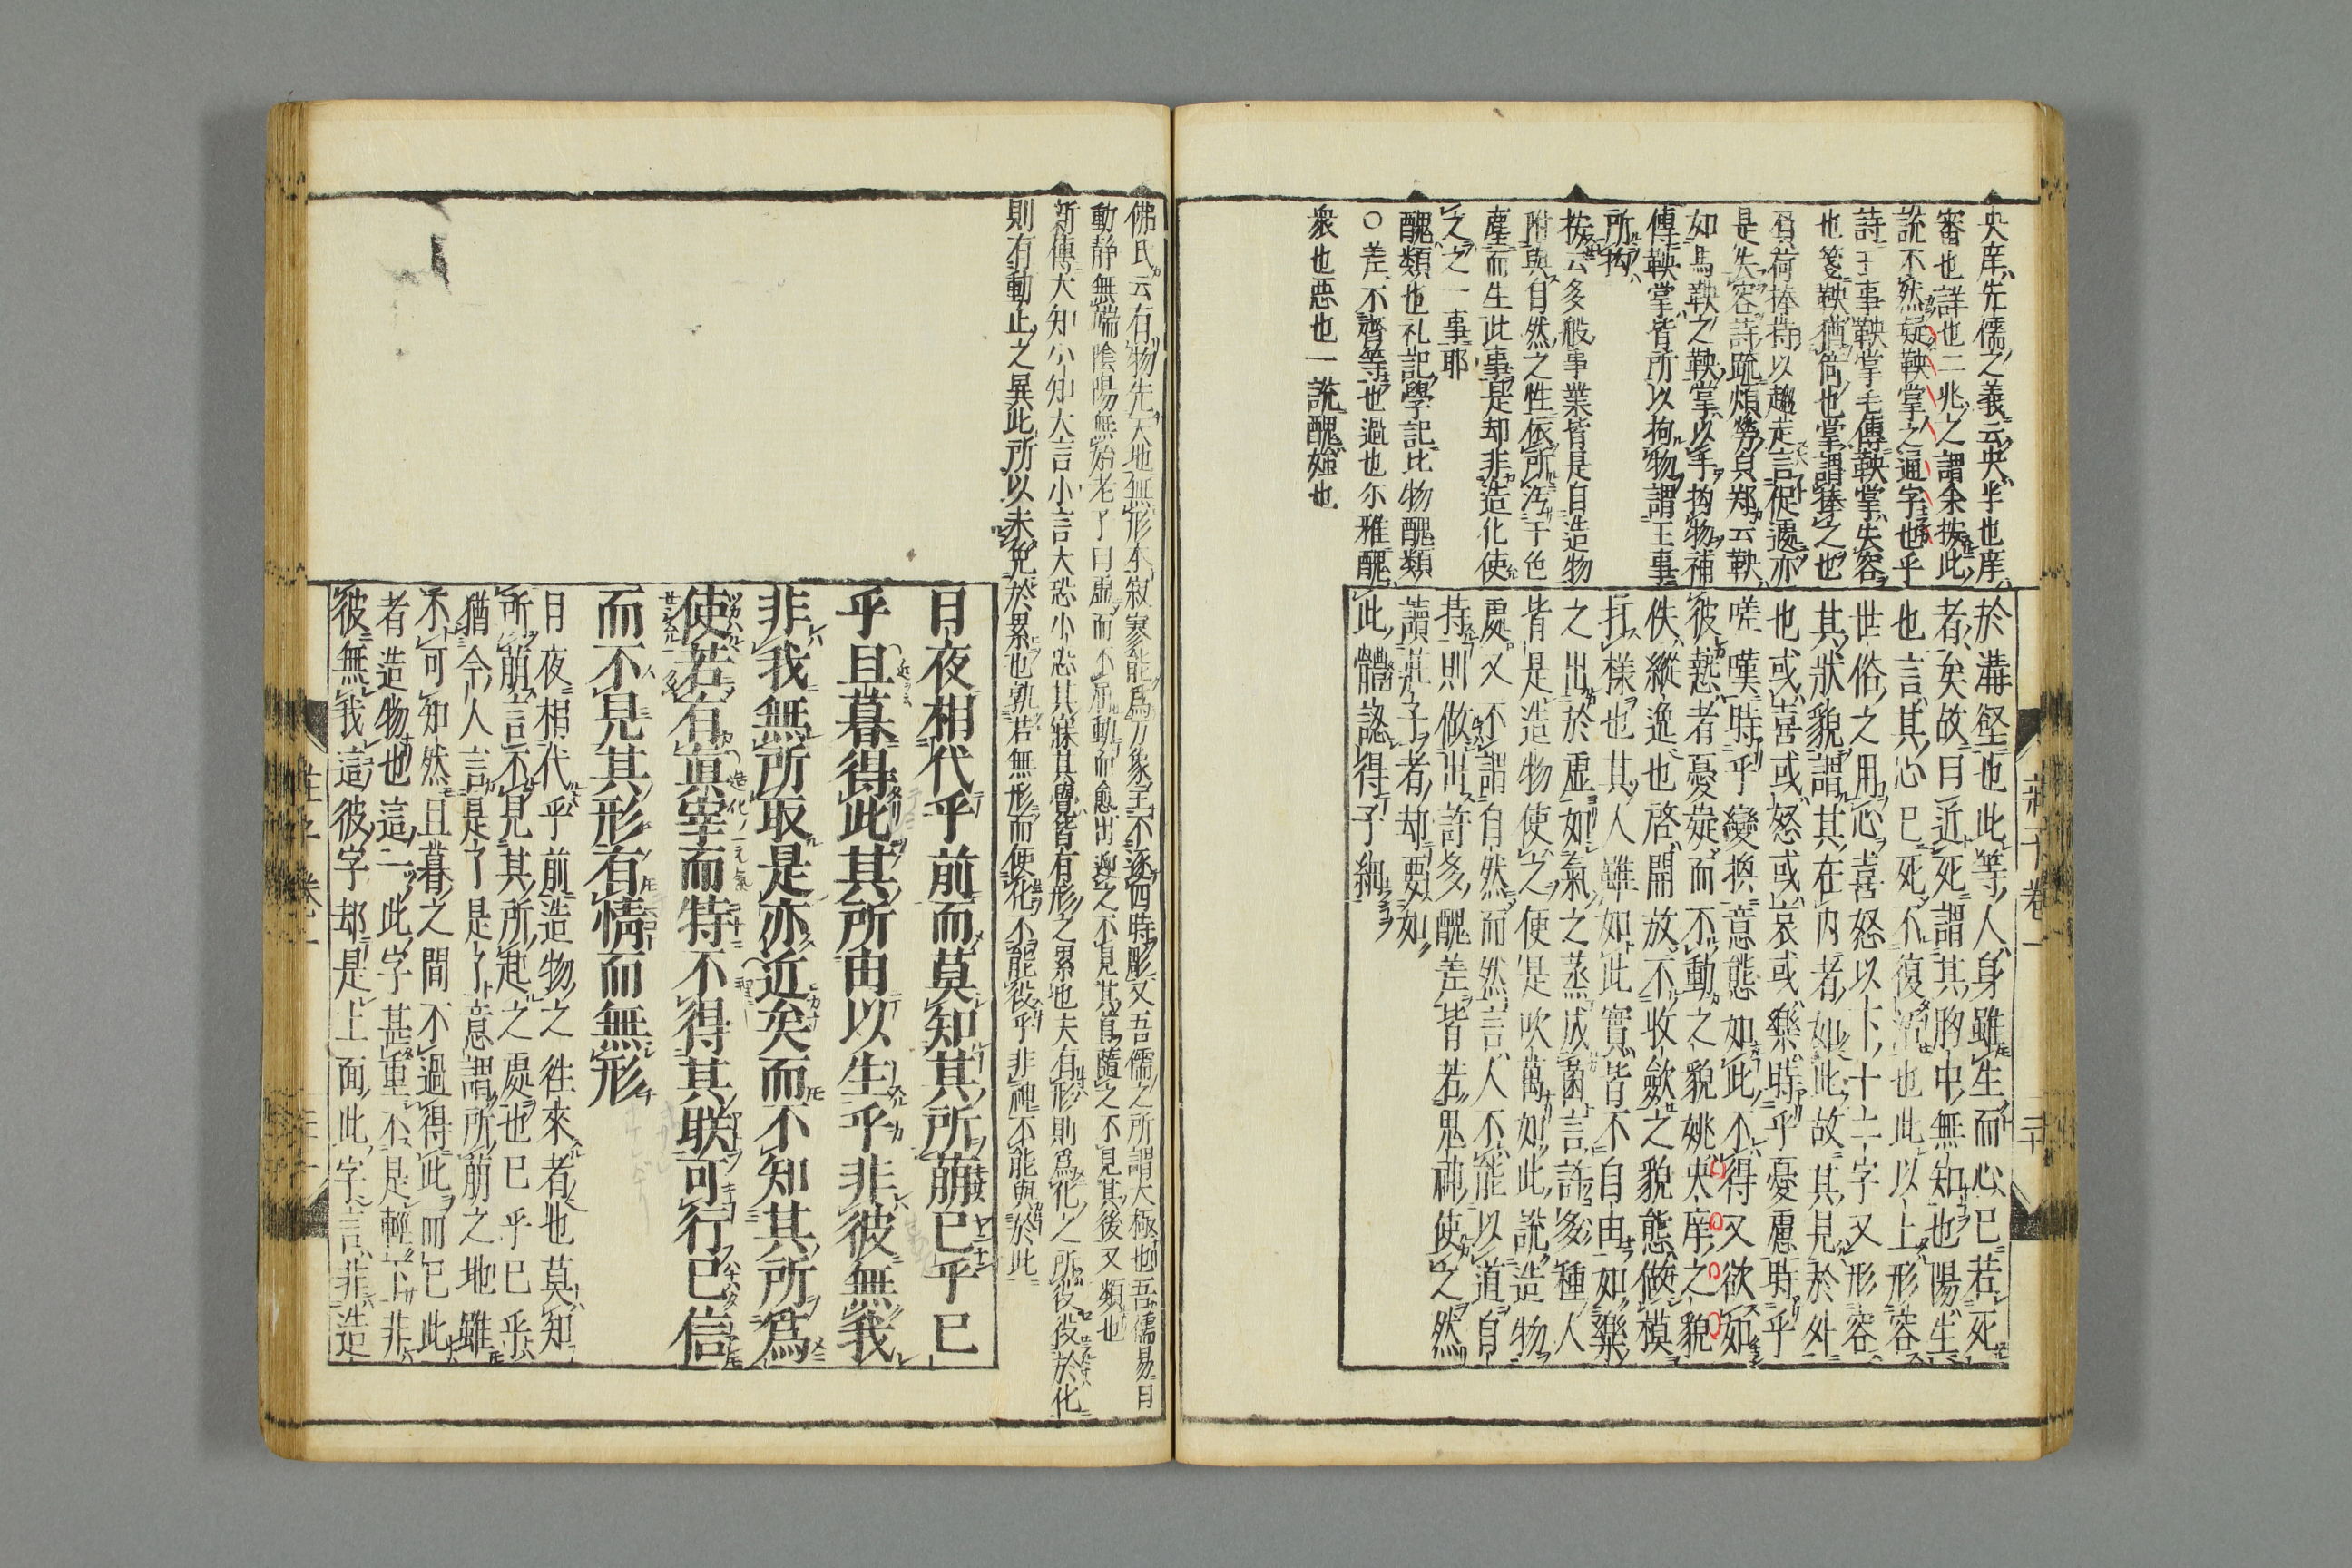 央庠先儒之義云央半也庠
審也詳也二兆之謂余按此
說不然疑鞅掌之通字也乎
詩王事鞅掌毛傳鞅掌失容
也箋鞅猶荷也掌謂捧之也
負荷捧持以趨走言促遽亦
是失容詩疏煩勞貝鄭云鞅
如馬鞅之鞅掌以手拘物補
傳鞅掌皆所以拘物謂王事
所拘
按云多般事業皆是自造物
附與自然之性依所沔于色
塵而生此事是却非造化使
之之一事耶
醜類也礼記學記比物醜類
○差不齊等也過也尓雅醜
衆也惡也一說醜媸也
於溝壑也此等人身雖生而心已若死
者矣故曰近死謂其胸中無知也陽生
也言其心已死不復活也此以上形容
世俗之用心喜怒以下十二字又形容
其狀貌謂其在内者如此故其見於外
也或喜或怒或哀或樂時乎憂慮時乎
嗟嘆時乎變換意態如此不得又欲如
彼慹者憂疑而不動之貌姚央庠之貌
佚縱逸也啓開放不收歛之貌態做模
打樣也其人雖如此實皆不自由如樂
之出於虛如氣之蒸成菌言許多種人
皆是造物使之使是吹萬如此說造物
處又不謂自然而然言人不能以道自
持則做出許多醜差皆若鬼神使之然
讀莊子者却要如
此體認得子細
莊子卷一
二十
佛氏云有物先天地無形本寂寥能爲万象主不逐四時彫又吾儒之所謂大極也吾儒易曰
動静無端陰陽無始老子曰虛而不屈動而愈出迎之不見其首隨之不見其後又類也
斯傳大知小知大言小言大恐小恐其寐其覺皆有形之累也夫有形則爲化之所役役於化
則有動止之異此所以未免於累也孰若無形而使化不能役乎非神不能與於此
日夜相代乎前而莫知其所萌已乎已
乎旦暮得此其所由以生乎非彼無我
非我無所取是亦近矣而不知其所爲
使若有眞宰而特不得其眹可行已信
而不見其形有情而無形
日夜相代乎前造物之往來者也莫知
所萌言不見其所起之處也已乎已乎
猶今人言是了是了意謂所萌之地雖
不可知然旦暮之間不過得此而已此
者造物也這二此字甚重不是輕下非
彼無我這彼字却是上面此字言非造
莊子卷一